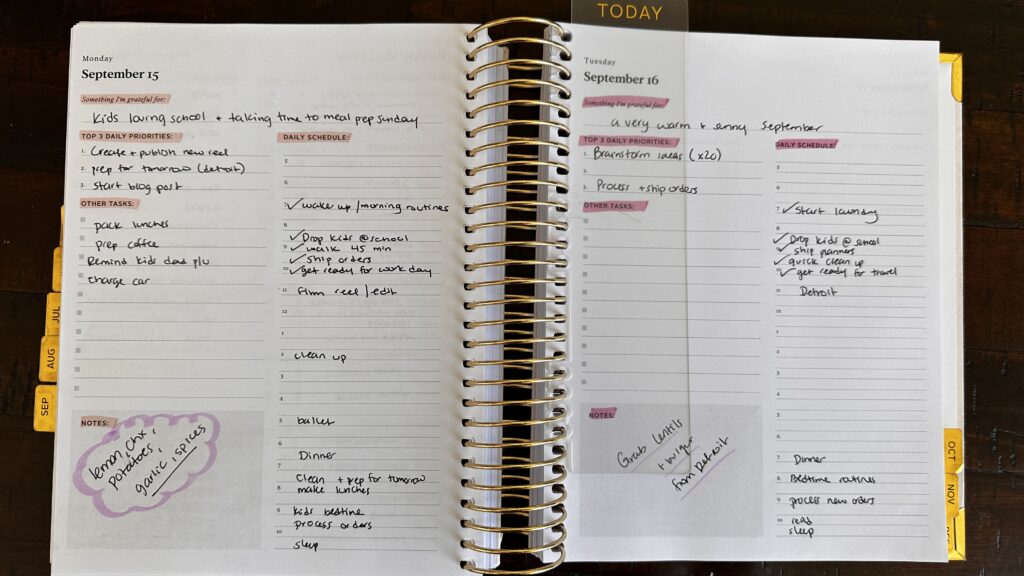 TODAY
Monday
September 15
Something I'm grateful for:
Kids loving school + taking time to meal prep sunday
TOP 3 DAILY PRIORITIES:
1. Create + publish new reel
2. prep for tomorrow (detroit)
3. Start blog post
OTHER TASKS:
pack lunches
prep coffee
Remind kids dad p/u
charge car
NOTES:
lemon, chx,
potatoes,
garlic, spices
DAILY SCHEDULE:
5
6
7 ✓ wake up/morning routines
8
✓ Drop kids @ school
9 ✓ walk 45 min
✓ ship orders
10 ✓ get ready for work day
11 film reel/edit
12
1
2 clean up
3
4
5 ballet
6
Dinner
7
Clean + prep for tomorrow
8 make lunches
9 kids bedtime
process orders
10
sleep
Tuesday
September 16
Something I'm grateful for:
a very warm + sunny September
TOP 3 DAILY PRIORITIES:
1. Brainstorm ideas (x20)
2.
3. Process + ship orders
OTHER TASKS:
NOTES:
Grab lentils
+ bulgur
from Detroit
DAILY SCHEDULE:
5
6
7 ✓ Start laundry
8
✓ Drop kids @ school
✓ ship planners
9 ✓ quick clean up
10 ✓ get ready for travel
11 Detroit
12
1
2
3
4
5
6
7 Dinner
8 Bedtime routines
9 process new orders
10 read
sleep
JUL
AUG
SEP
OCT
NOV